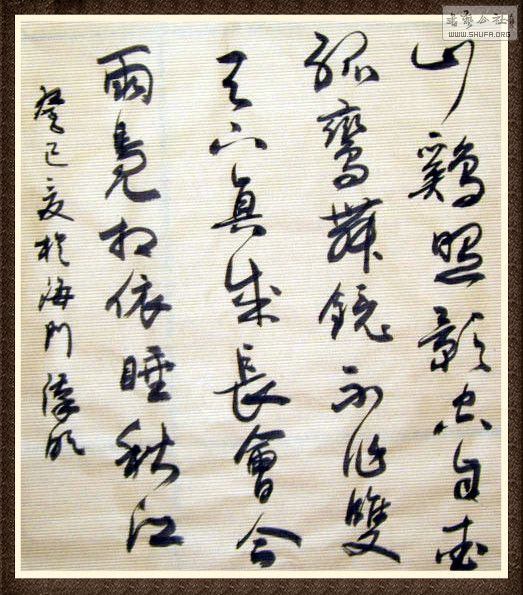 书艺公社
WWW.SHUFA.ORG
山鷄照影空自愛
孤鸞舞鏡不作雙
天下真成長會合
兩鳧相依睡秋江
癸巳夏於海門